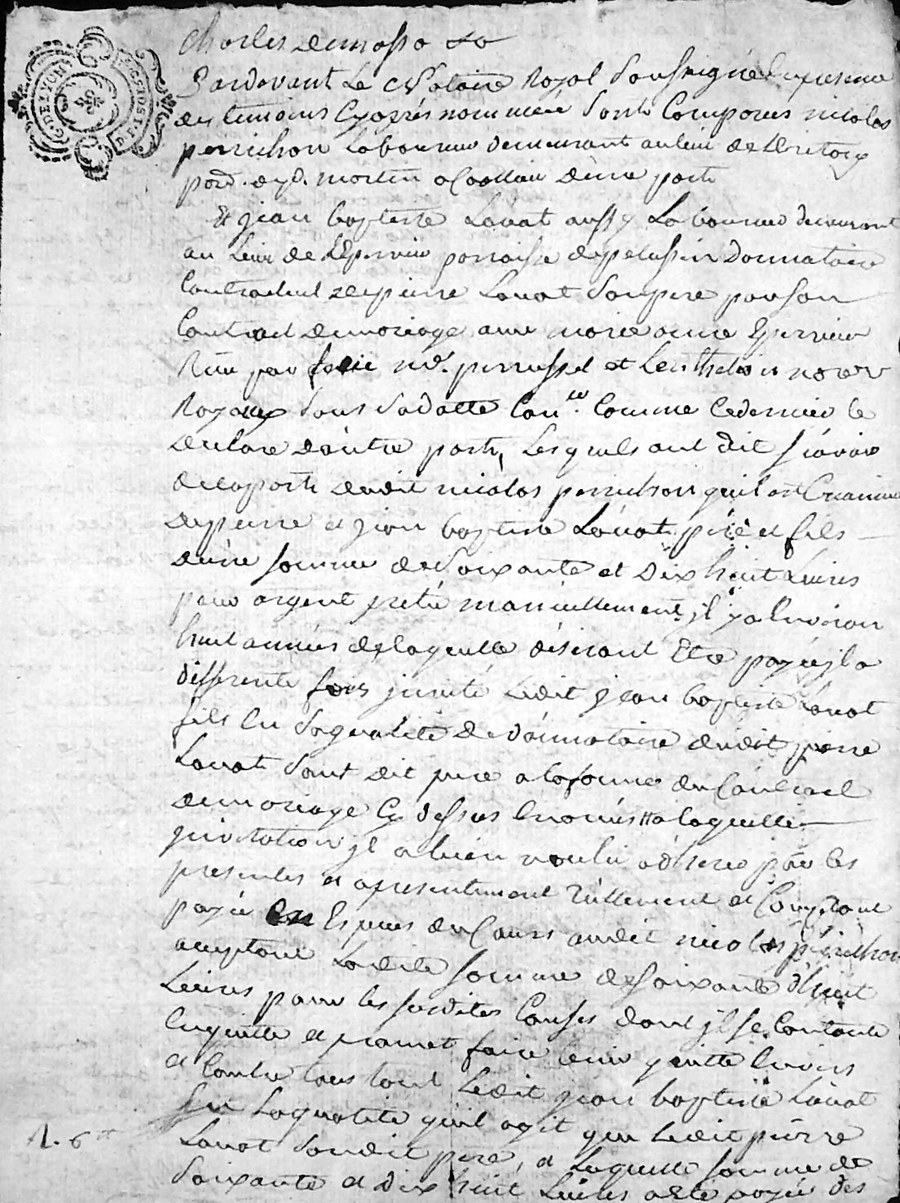 G. DE LYON
Pardevant Le Notaire Royal Soussigné En presence
des temoins Cy apres nommes Sont Comparus nicolas
perrichon Laboureur demeurant au lieu de
d'une part
Et jean baptiste Lavat aussy Laboureur demeurant
au Lieu de paroisse de pelussin Donnataire
Contractuel de pierre Lavat Son pere par son
Contract de mariage avec marie anne Epervier
Reçu par et
Royaux Sous Sa datte Con. Comme Ce dernier le
Declare d'autre part, Lesquels ont dit sçavoir
de la part dudit nicolas perrichon qu'il est Creancier
de pierre et jean baptiste Lavat pere et fils
d'une somme de Soixante et Dix huit Livres
pour argent preté manuellement, jl y a Environ
huit années de laquelle désirant Etre payé jl a
differente fois jnvité Ledit jean baptiste Lavat
fils En Sa qualité de Donnataire dudit pierre
Lavat Sont dit pere a la forme du Contract
de mariage Cy dessus Enoncé a laquelle
jnvitation jl a bien voulu adherer par les
presentes et a presentement Réellement et Comptant
payé En Especes du Cours audit nicolas périchon
acceptant Ladite Somme de Soixante dhuit
Livres pour les susdites Causes dont jl se Contente
En quitte et promet faire tenir quitte Envers
et Contre tous tant Ledit jean baptiste Lavat
En La qualité qu'il agit que Ledit pierre
Lavat Sondit pere, et Laquelle somme de
Soixante et Dix huit Livres a eté payée des